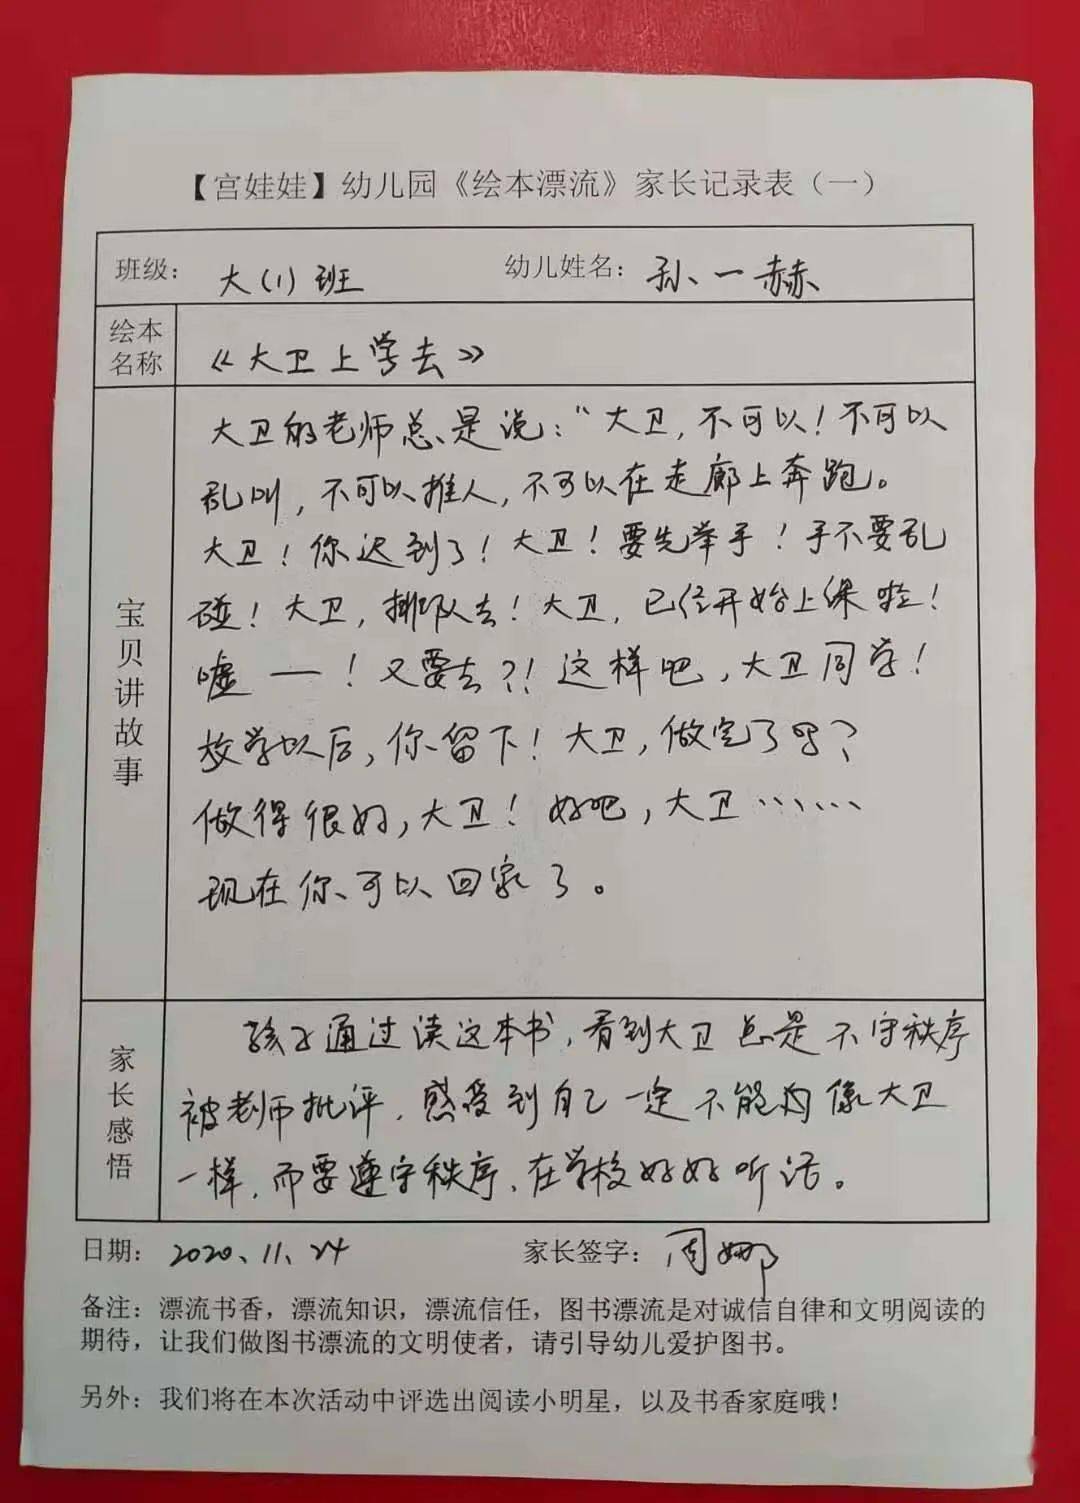 【宫娃娃】幼儿园《绘本漂流》家长记录表（一）
班级： 大(1)班 幼儿姓名： 孙一赫
绘本名称 《大卫上学去》
宝贝讲故事
大卫的老师总是说：“大卫，不可以！不可以
乱叫，不可以推人，不可以在走廊上奔跑。
大卫！你迟到了！大卫！要先举手！手不要乱
碰！大卫，排队去！大卫，已经开始上课啦！
嘘——！又要去？！这样吧，大卫同学！
放学以后，你留下！大卫，做完了吗？
做得很好，大卫！好吧，大卫……
现在你可以回家了。
家长感悟
孩子通过读这本书，看到大卫总是不守秩序
被老师批评，感受到自己一定不能够像大卫
一样，而要遵守秩序、在学校好好听话。
日期： 2020.11.24 家长签字： 周娜
备注：漂流书香，漂流知识，漂流信任，图书漂流是对诚信自律和文明阅读的
期待，让我们做图书漂流的文明使者，请引导幼儿爱护图书。
另外：我们将在本次活动中评选出阅读小明星，以及书香家庭哦！